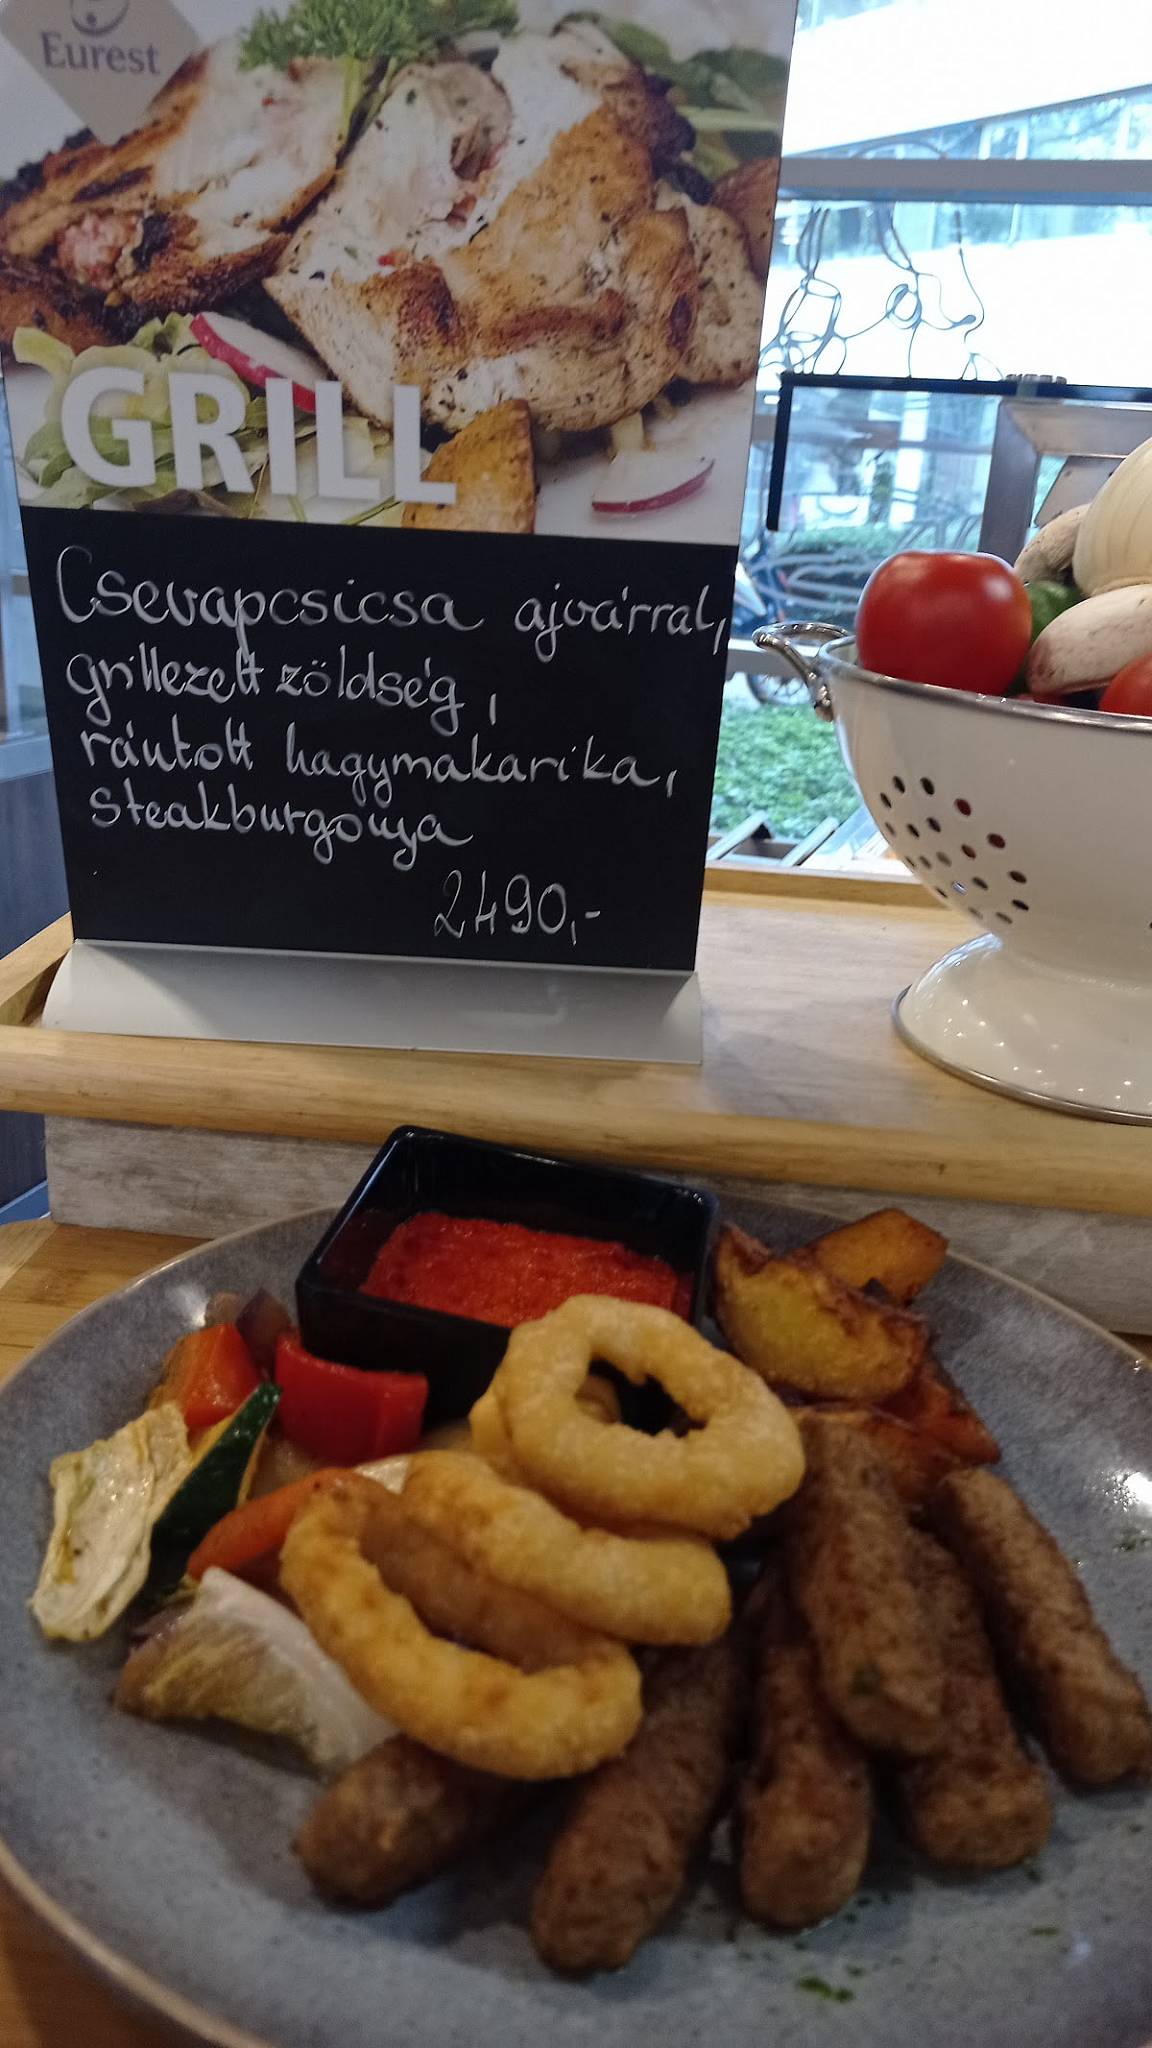 Eurest
GRILL
Csevapcsicsa ajvárral,
grillezett zöldség,
rántott hagymakarika,
steakburgonya
2490,-